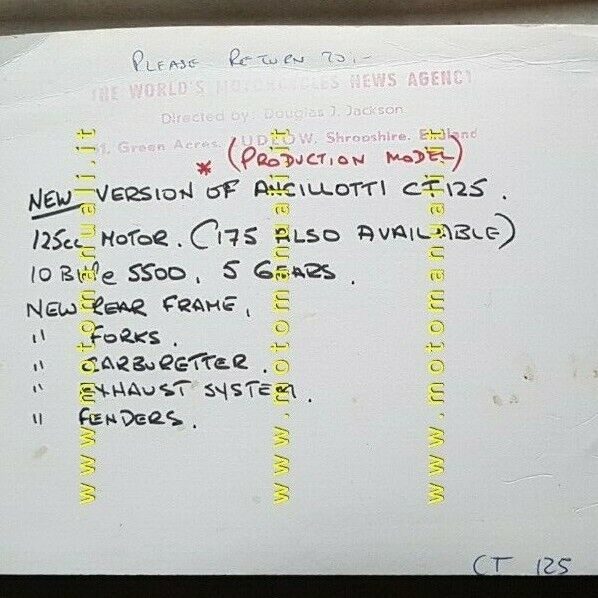 PLEASE RETURN TO:-
THE WORLD'S MOTORCYCLES NEWS AGENCY
Directed by: Douglas J. Jackson
Green Acres, LUDLOW, Shropshire, England
* (PRODUCTION MODEL)
NEW VERSION OF ANCILLOTTI CT125.
125cc MOTOR. (175 ALSO AVAILABLE)
5500, 5 GEARS.
NEW REAR FRAME,
" FORKS.
" CARBURETTER.
" EXHAUST SYSTEM.
" FENDERS.
CT 125
www.motomanuali.it
www.motomanuali.it
www.motomanuali.it